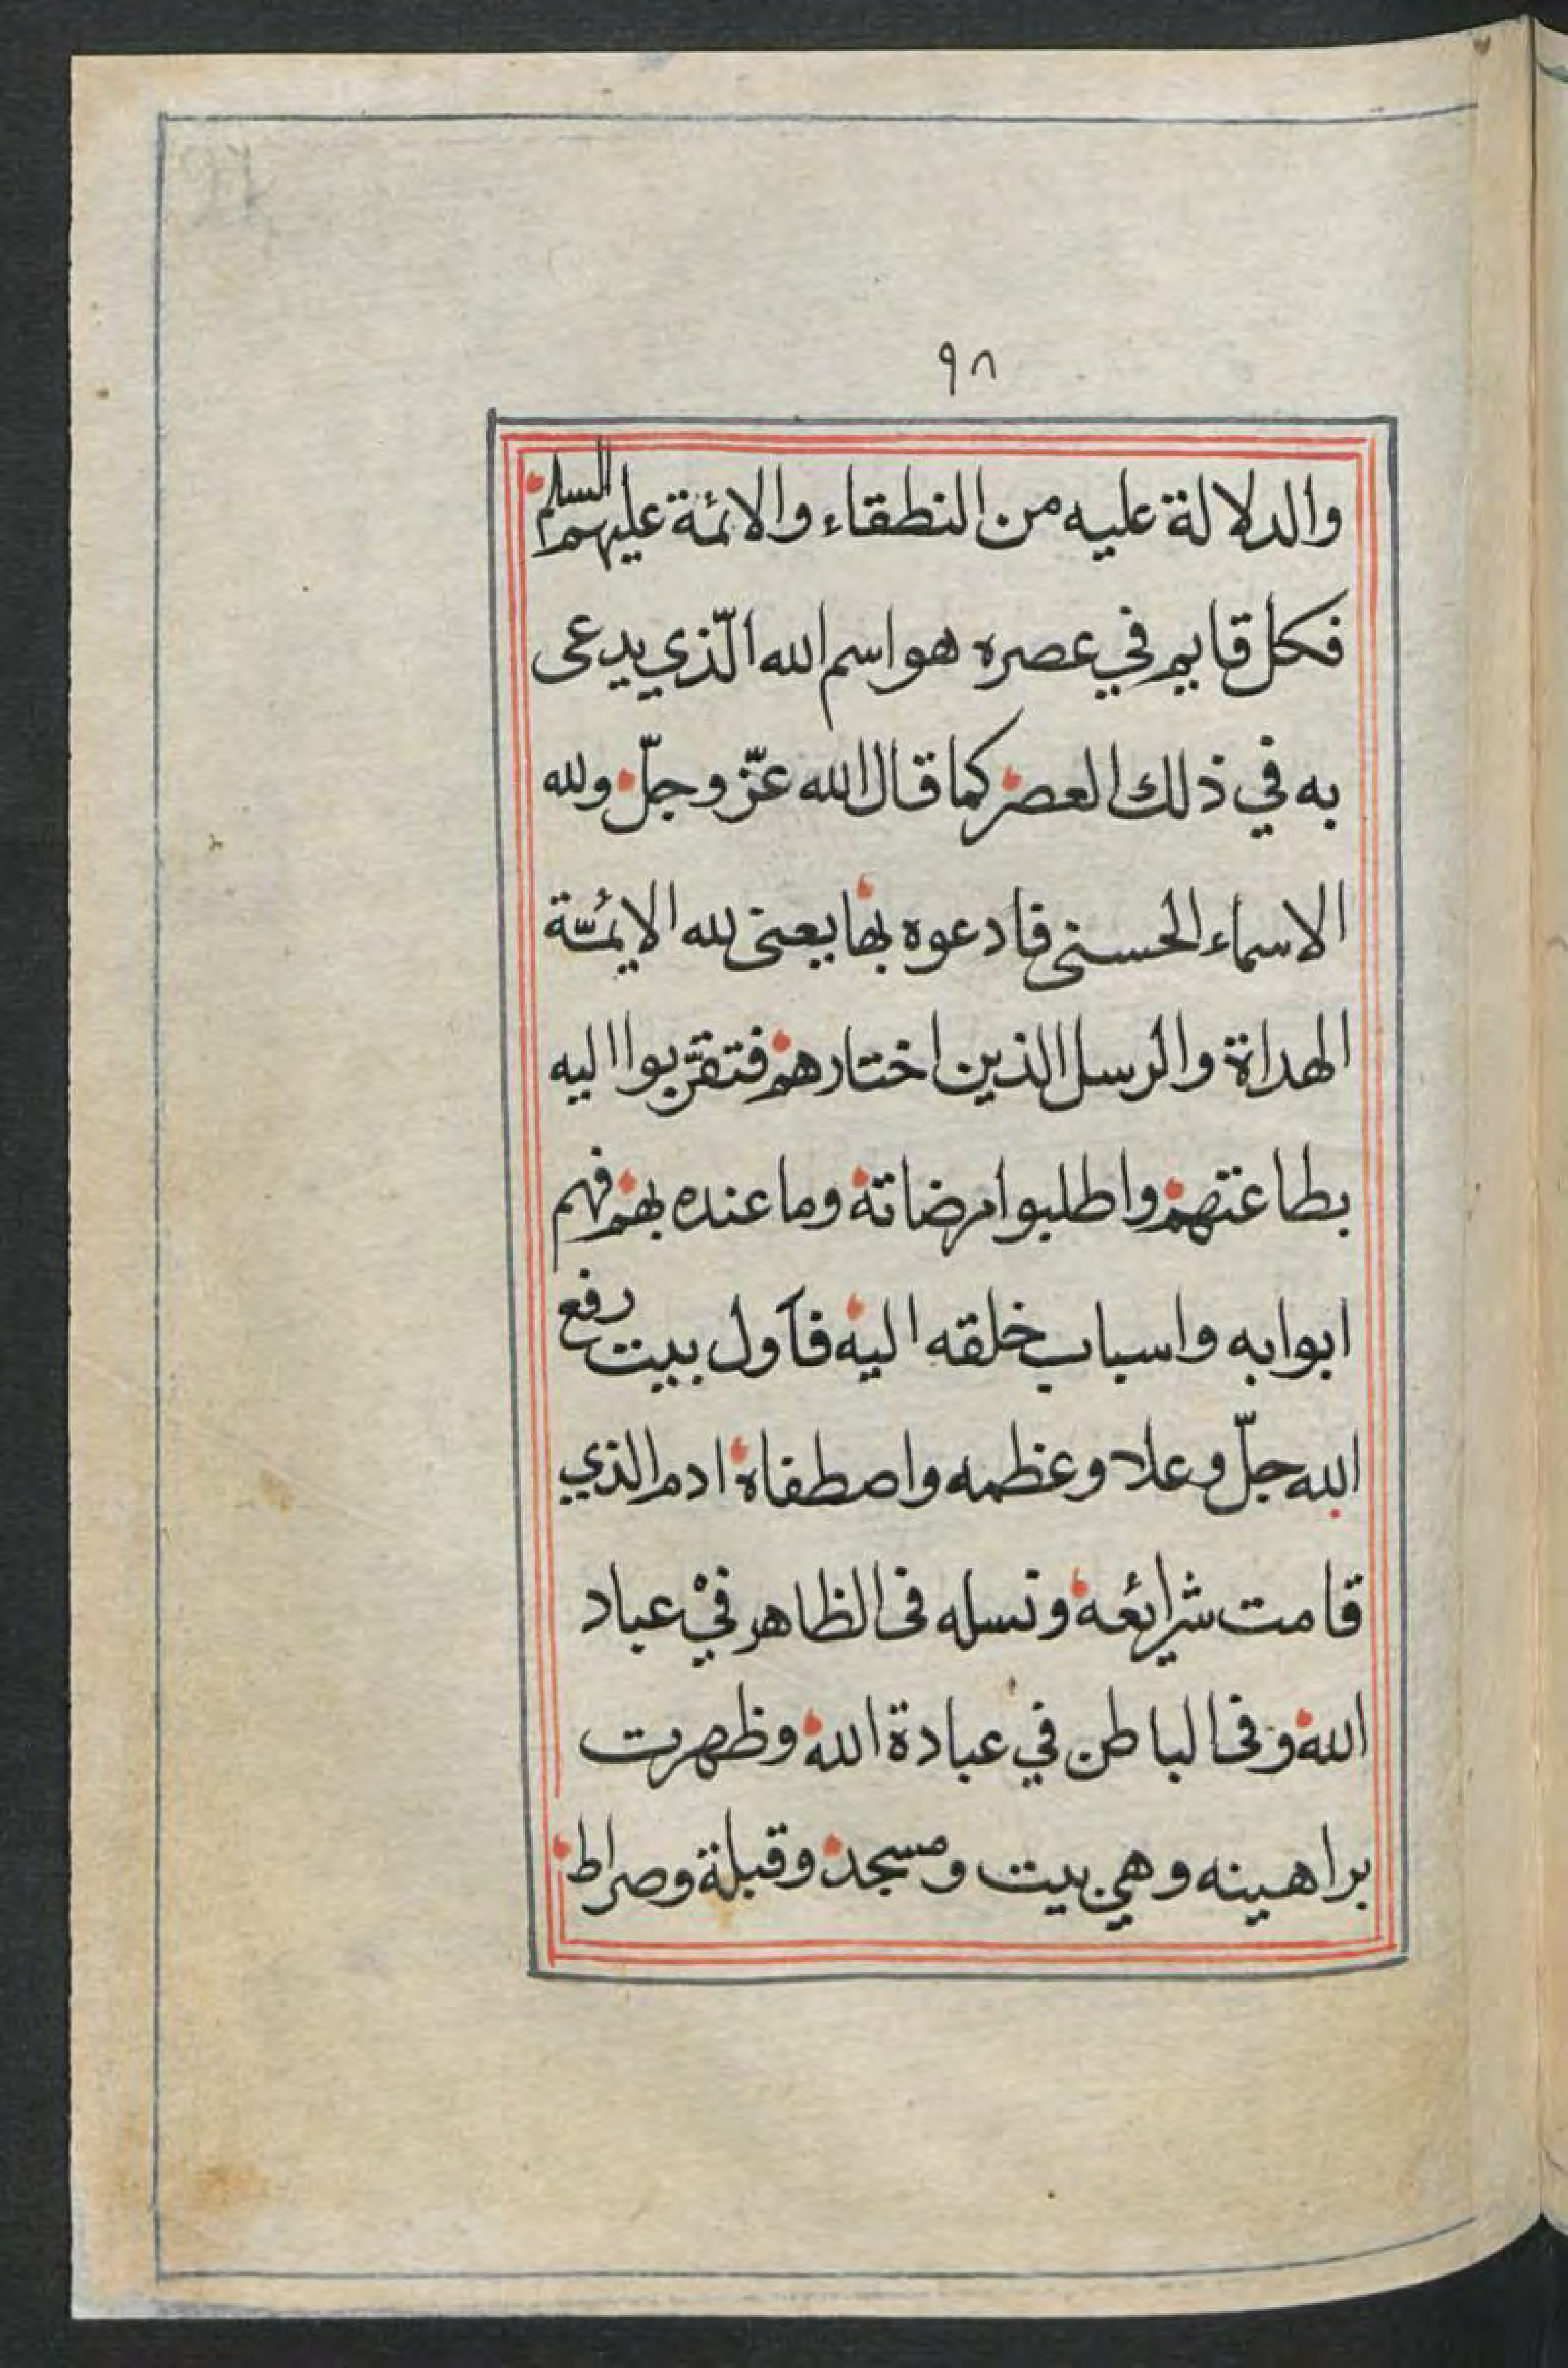 ٩٨
والدلالة عليه من النطقاء والائمة عليهم السلم
فكل قايم في عصره هو اسم الله الّذي يدعى
به في ذلك العصر كما قال الله عزّ وجلّ ولله
الاسماء الحسنى فادعوه بها يعنى لله الايمّة
الهداة والرسل الذين اختارهم فتقرّبوا اليه
بطاعتهم واطلبوا مرضاته وما عنده بهم فهم
ابوابه واسباب خلقه اليه فآول بيت رفع
الله جلّ وعلا وعظمه واصطفاه ادم الذي
قامت شرائعه ونسله فى الظاهر فيْ عباد
الله وفى الباطن في عبادة الله وظهرت
براهينه وهي بيت ومسجد وقبلة وصراط